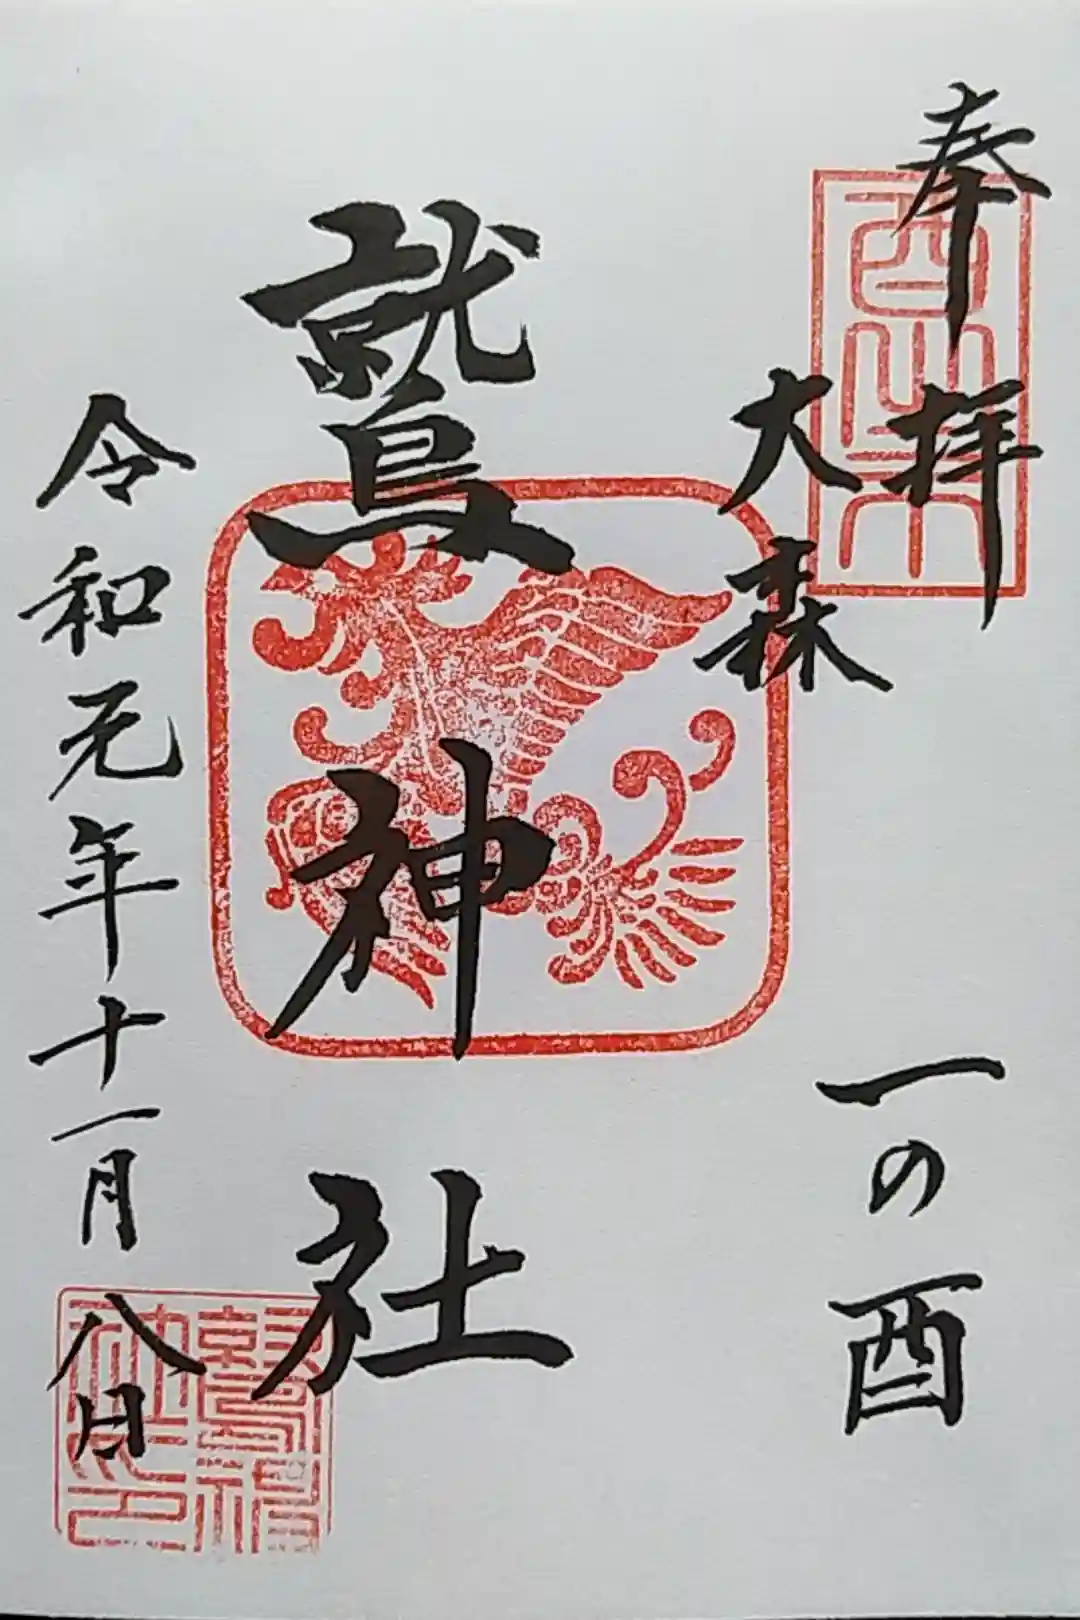 奉拝
一の酉
大森
鷲神社
令和元年十一月八日